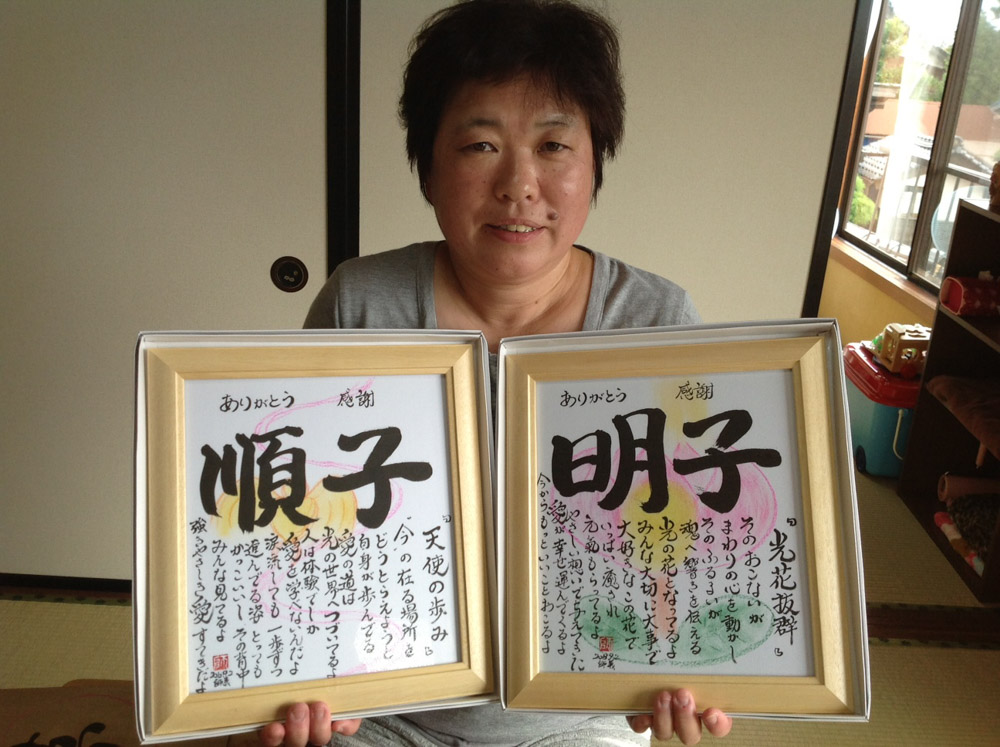 ありがとう 感謝
順子
『天使の歩み』
今の在る場所を
どうとらえようと
自身が歩んでる
愛の道は
光の世界へつづいてるよ
人は体験でしか
愛を学べないんだよ
涙流しても一歩ずつ
進んでる姿とっても
かっこいいしその背中
みんな見てるよ
強さやさしさ愛すてきだよ
ありがとう 感謝
明子
『光花抜群』
そのおこないが
まわりの心を動かし
そのふるまいが
魂へ響きを伝える
光の花となってるよ
みんな大切に大事で
大好きなこの花で
いっぱい癒され
元氣もらってるよ
やさしい想いで支えてきた
愛が幸せ運んでくる
今からもっといいことおこるよ